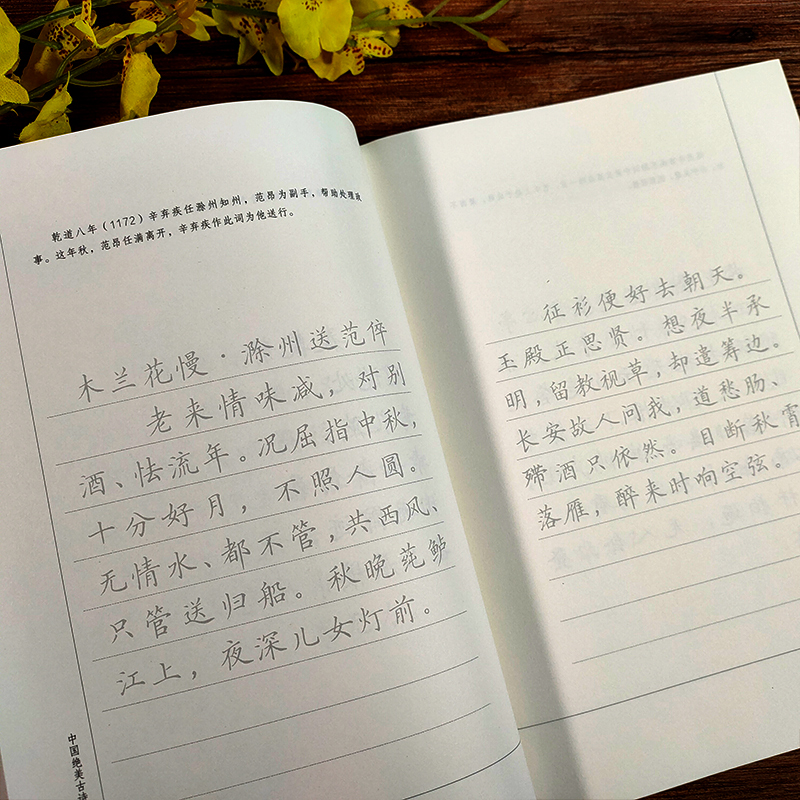 乾道八年（1172）辛弃疾任滁州知州，范昂为副手，帮助处理政
事。这年秋，范昂任满离开，辛弃疾作此词为他送行。
木兰花慢·滁州送范倅
老来情味减，对别
酒、怯流年。况屈指中秋，
十分好月，不照人圆。
无情水、都不管，共西风、
只管送归船。秋晚莼鲈
江上，夜深儿女灯前。
中国绝美古诗
征衫便好去朝天。
玉殿正思贤。想夜半承
明，留教视草，却遣筹边。
长安故人问我，道愁肠、
殢酒只依然。目断秋霄
落雁，醉来时响空弦。